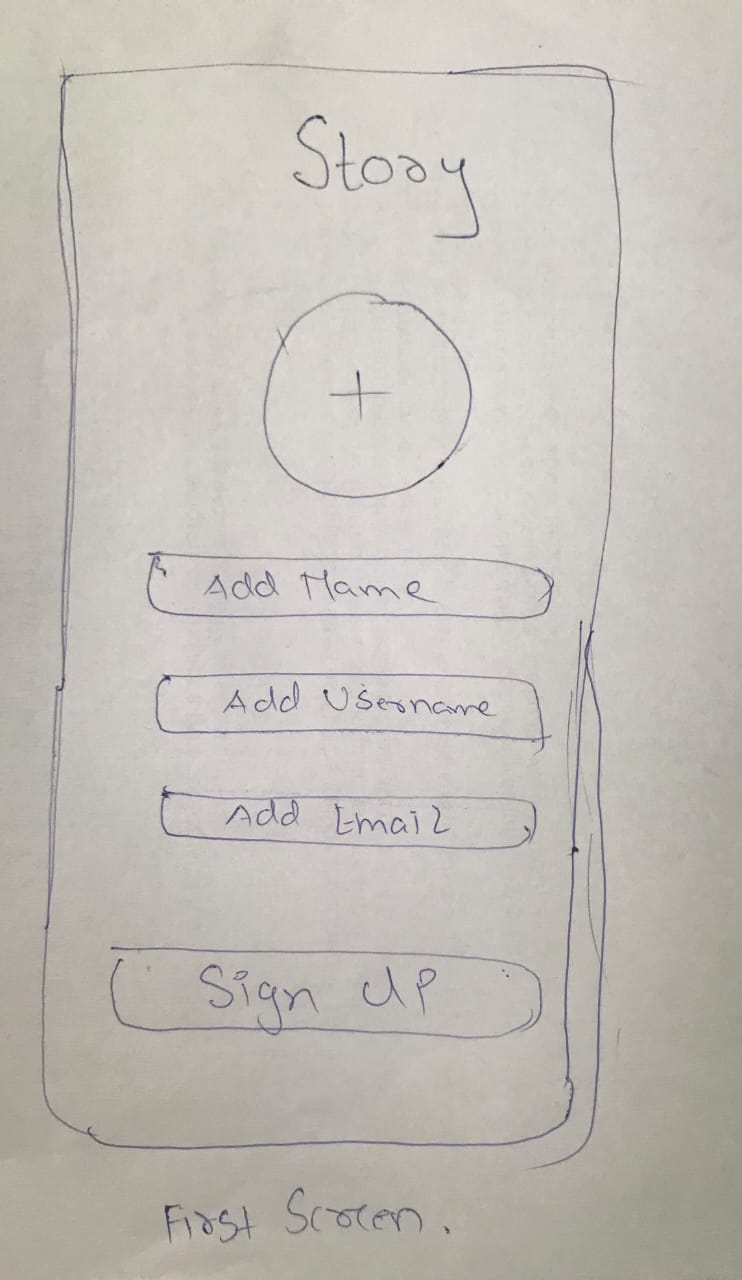 Story
+
Add Name
Add Username
Add Email
Sign Up
First Screen.